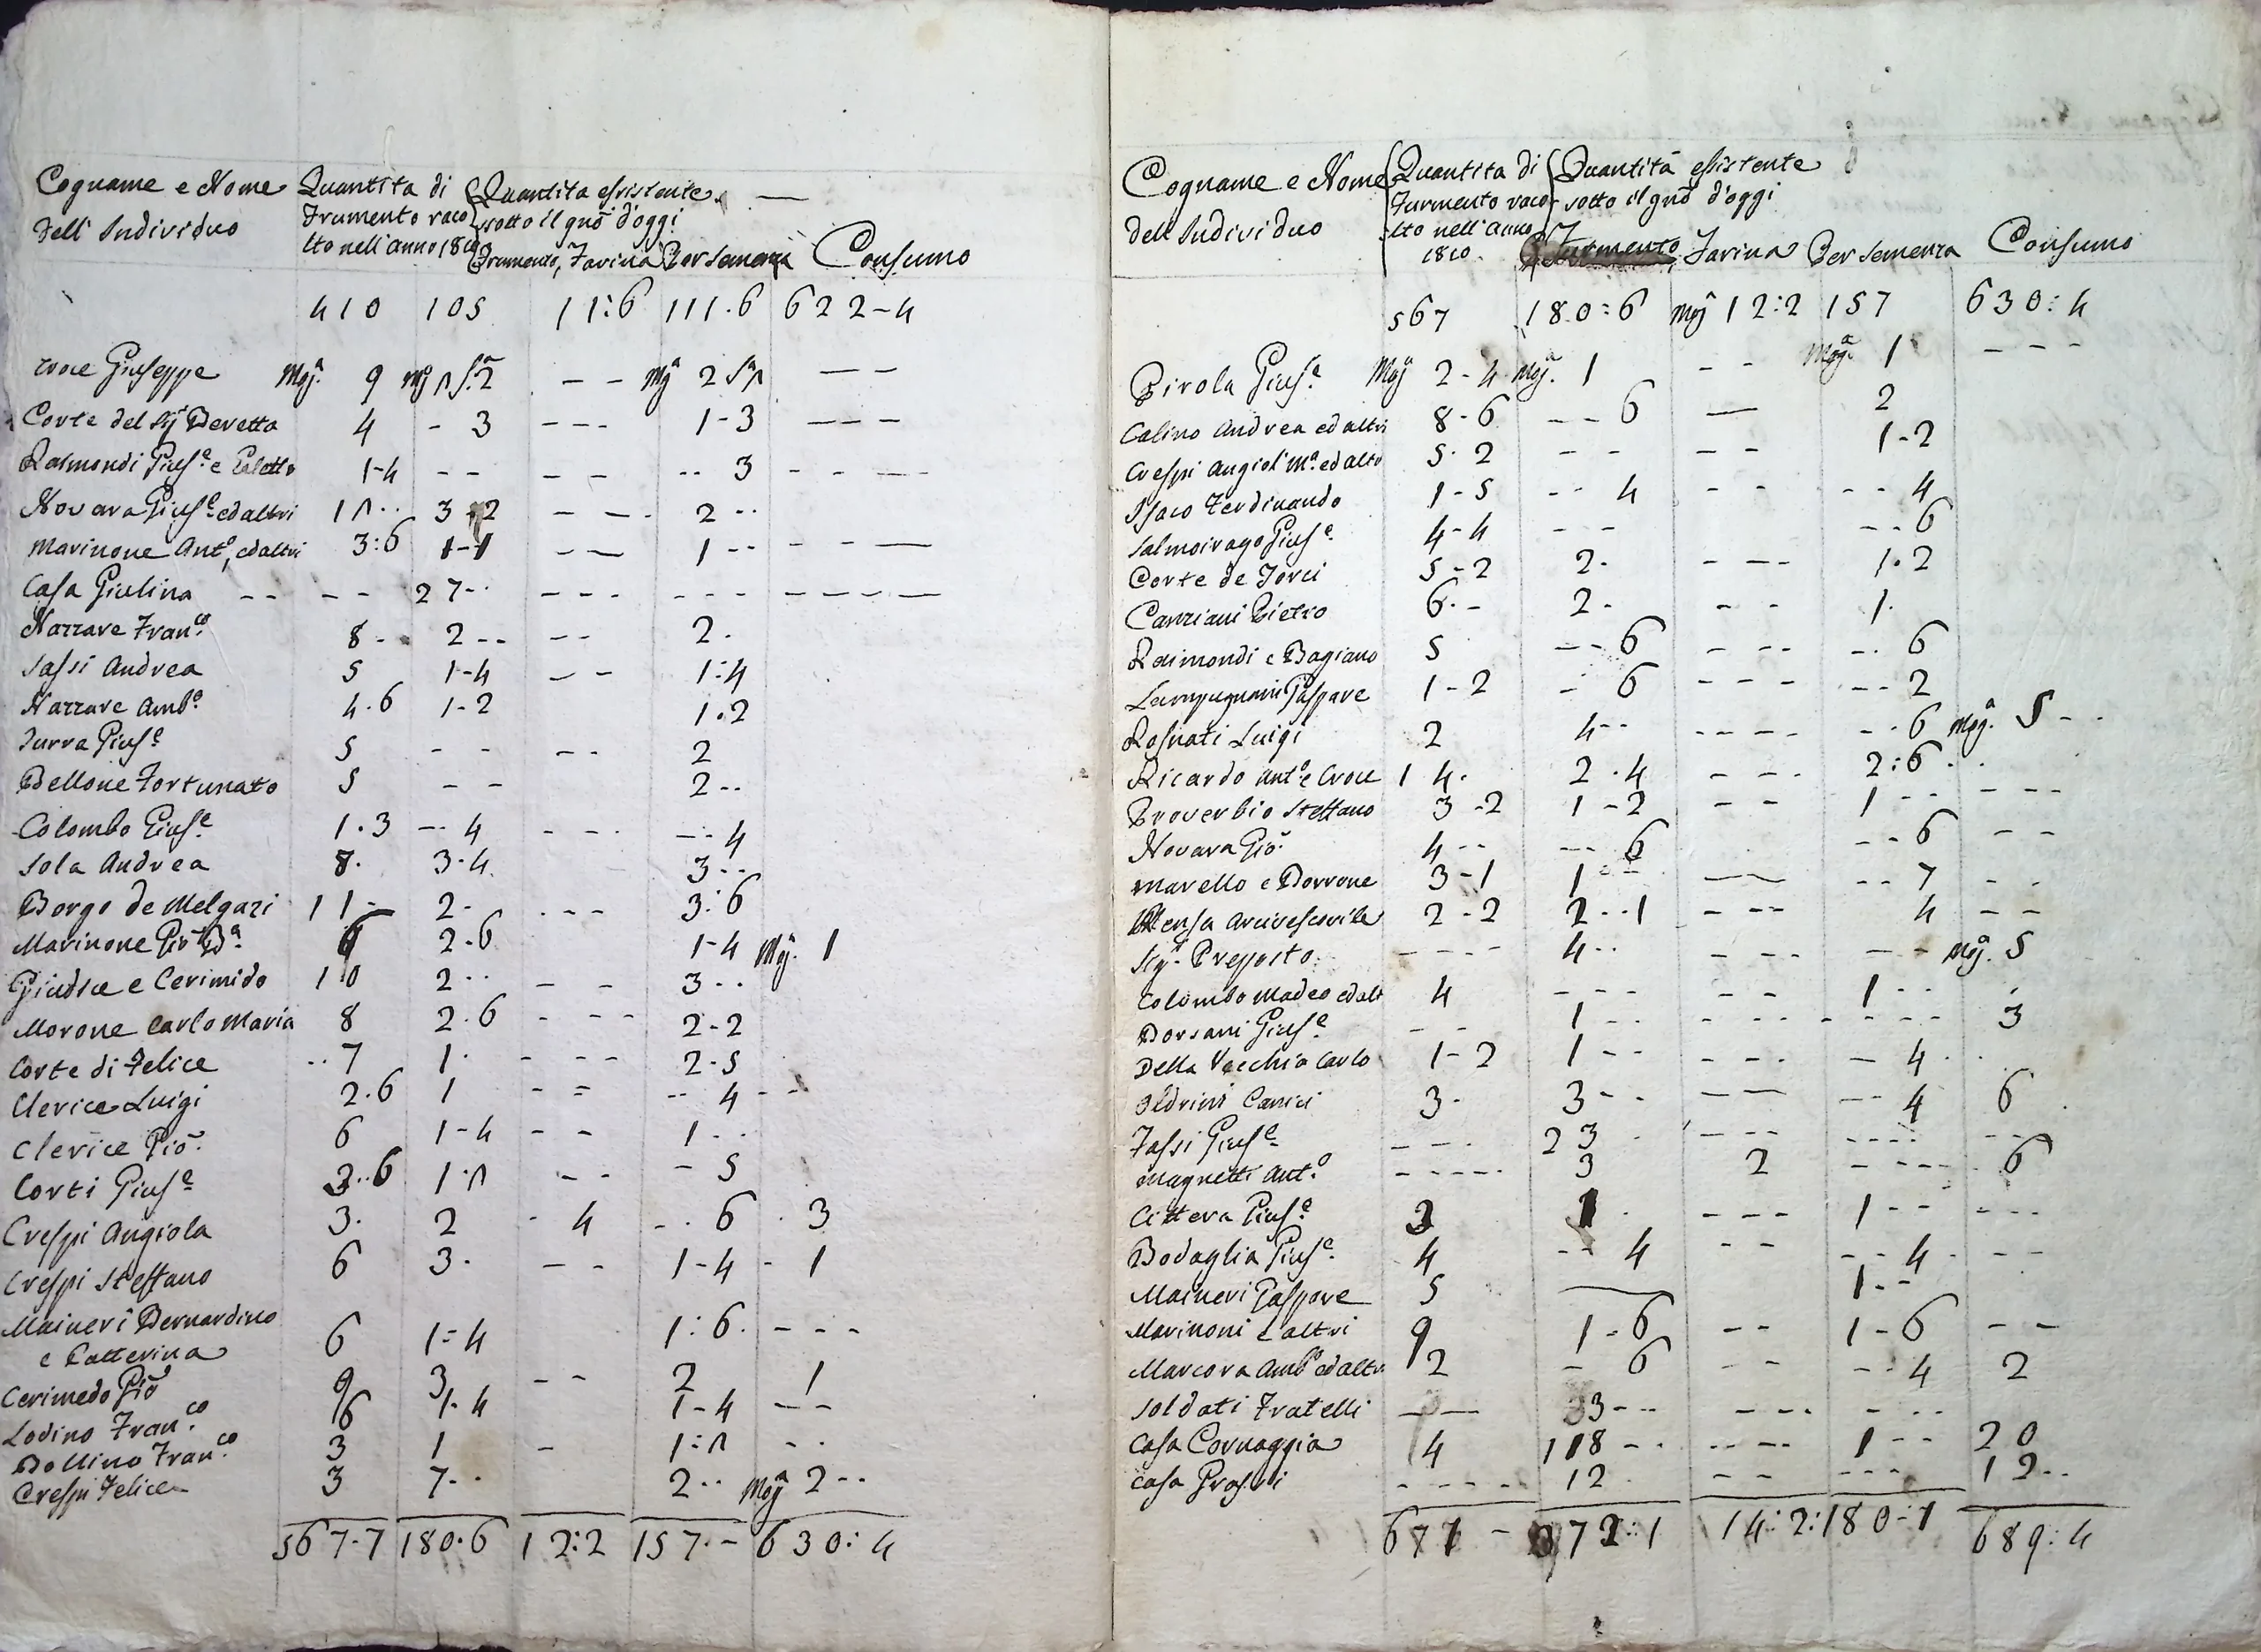 Cognome e Nome Quantita di Quantita essistente
Dell' Individuo Frumento raco sotto il gnõ d'oggi
lto nell' anno 1810 Frumento, Farina Per semenza Consumo
410 105 11:6 111.6 622-4
Croce Giuseppe Mgª 9 - - - -
Corte del Sigr Beretta 4 - 3 - - - 1-3 - - -
Raimondi Giuse e 1-4 - - - - - - 3 - - - -
Novara Giuse ed altri 3-2 - - - 2 - -
Marinone Anto, ed altri 3:6 1-1 - - 1 - - - - -
Casa Giulina - - - - 27 - - - - - - - - - - - -
Narrare Franco 8 - 2 - - - - 2.
Sassi Andrea 5 1-4 - - 1:4
Narrare Ambo 4.6 1-2 1.2
Turra Giuse 5 - - - - 2
Bellone Fortunato 5 - - 2 - -
Colombo Giuse 1.3 - - 4 - - - - - 4
Sola Andrea 8. 3-4. 3 - -
Borgo de Melgari 11 - 2 - - - - 3:6
Marinone Gio Ba 2-6 1-4 Mgª 1
Giudice e Cerimido 10 2 - - - - 3 - -
Morone Carlo Maria 8 2.6 - - - 2-2
Corte di Felice - - 7 1. - - - 2-5
Clerice Luigi 2.6 1 - = - - 4 - -
Clerice Gio. 6 1-4 - - 1 - -
Corti Giuse - - - 5
Crespi Angiola 3. 2 - 4 - - 6 - 3
Crespi Steffano 6 3. - - 1-4 - 1
Maineri Bernardino
e Catterina 6 1=4 1:6. - - -
Cerimedo Gio 9 3 - - 2 1
Lodino Franco 6 1-4 1-4 - -
Bollino Franco 3 1 - - -
Crespi Felice 3 7 - - 2 - - Mgª 2 - -
567-7 180.6 12:2 157.- 630:4
Cognome e Nome Quantita di Quantità essistente
dell Individuo Furmento raco sotto il gnõ d'oggi
lto nell' anno
1810. Furmento Farina Per semenza Consumo
567 180=6 Mgª 12:2 157 630:4
Pirola Giuse Mgª 2-4 Mgª 1 - - Mgª 1 - - -
Calino Andrea ed altri 8-6 - - 6 — 2
Crespi Angiol Ma ed altr 5-2 - - - - 1-2
Isaco Ferdinando 1-5 - - 4 - - - - 4
Salmoirago Giuse 4-4 - - - - 6
Corte de 5-2 2. - - - 1.2
Canziani Pietro 6.- 2 - - - 1.
Raimondi e Bagiano 5 - - 6 - - - - - 6
Lampugnani Gaspare 1-2 - 6 - - - - - 2
Rosnati Luigi 2 4 - - - - - - - - 6 Mgª 5 - -
Ricardo Anto e Croce 14. 2.4 - - - 2:6 - -
Proverbio Steffano 3-2 1-2 - - 1 - - - - -
Novara Gio. 4 - - - - 6 - - 6 - -
Marello e Borrone 3-1 1 - - — - - 7 - -
Mensa Arcivescovile 2-2 2 - - 1 - - - 4 - -
Sigr Preposto - - - - 4 - - - - - - - Mgª 5
Colombo Madeo ed alt 4 - - - - - 1 - -
Borsani Giuse - - 1 - - - - - - - - - 3
Della Vecchia Carlo 1-2 1 - - - - - - 4 - -
Oldrini 3 - 3 - - - - - - 4 6
Fassi Giuse - - - 23 - - - - - - - - -
Magnetti Anto - - - - 3 2 - - - - 6
Cittera Giuse 1 - - - 1 - - - - -
Bodaglia Giuse 4 - - 4 - - - - 4 - - -
Maineri Gaspare 5 — 1 - -
Marinoni e altri 9 1-6 - - 1-6 - -
Marcora Ambo ed altri 2 - 6 - - - - 4 2
Soldati Fratelli - - 33 - - - - - - - -
Casa Cornaggia 4 118 - - - - - 1 - - 20
Casa - - - - 12 - - - - - 12 - -
14:2: 180-1 689:4